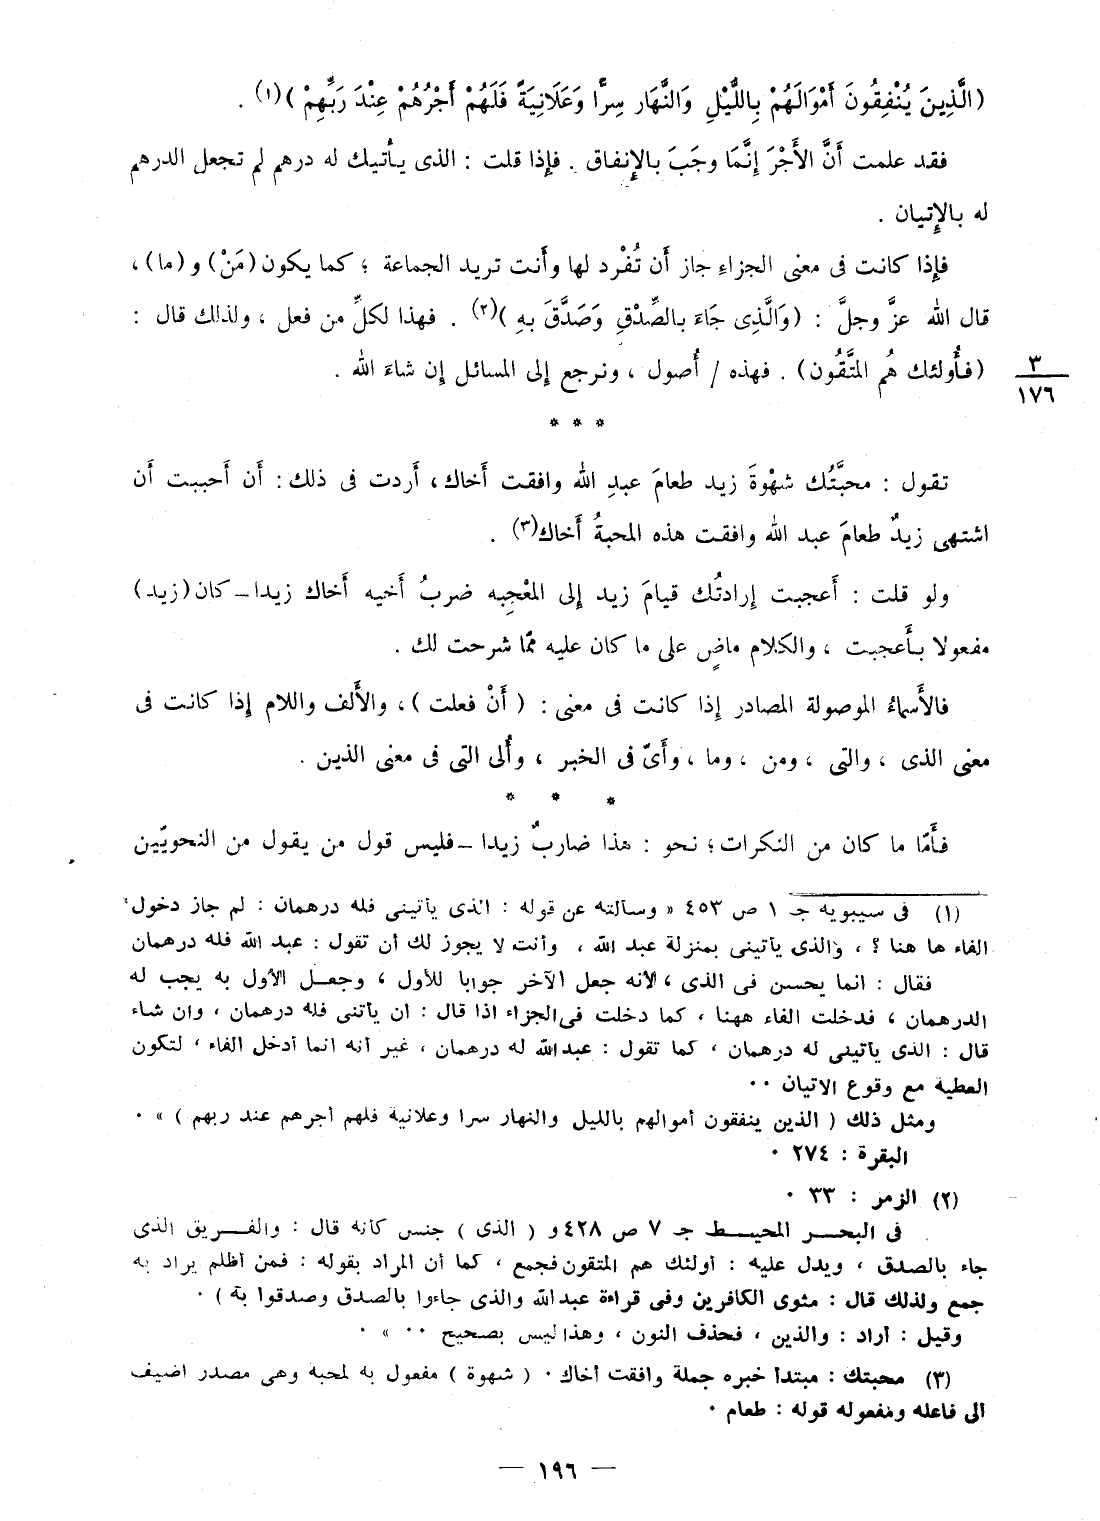 (الَّذِينَ يُنْفِقُونَ أَمْوَالَهُمْ بِاللَّيْلِ وَالنَّهَارِ سِرًّا وَعَلَانِيَةً فَلَهُمْ أَجْرُهُمْ عِنْدَ رَبِّهِمْ )(١) .
فقد علمت أَنَّ الأَجْرَ إِنَّمَا وجَبَ بالإِنفاق . فإِذا قلت : الذى يأتيك له درهم لم تجعل الدرهم
له بالإِتيان .
فإِذا كانت فى معنى الجزاءِ جاز أَن تُفْرد لها وأَنت تريد الجماعة ؛ كما يكون (مَنْ) و (ما) ،
قال الله عزَّ وجلَّ : (وَالَّذِى جَاءَ بالصِّدْقِ وَصَدَّقَ بِهِ )(٢) . فهذا لكلِّ من فعل ، ولذلك قال :
(فأُولئك هُم المتَّقُون) . فهذه / أُصول ، ونرجع إلى المسائل إن شاءَ الله .
٣
١٧٦
* * *
تقول : محبَّتُك شهْوةَ زيد طعامَ عبدِ الله وافقت أَخاك ، أَردت فى ذلك : أَن أَحببت أَن
اشتهى زيدٌ طعامَ عبد الله وافقت هذه المحبةُ أَخاك(٣) .
ولو قلت : أَعجبت إرادتُك قيامَ زيد إلى المعْجِبه ضربُ أَخيه أَخاك زيدا – كان (زيد)
مفعولا بأَعجبت ، والكلام ماضٍ على ما كان عليه ممّا شرحت لك .
فالأَسماءُ الموصولة المصادر إذا كانت فى معنى : ( أَنْ فعلت ) ، والأَلف واللام إذا كانت فى
معنى الذى ، والتى ، ومن ، وما ، وأَىّ فى الخبر ، وأُلى التى فى معنى الذين .
* * *
فأَمّا ما كان من النكرات ؛ نحو : هذا ضاربٌ زيدا – فليس قول من يقول من النحويّين
(١) فى سيبويه جـ ١ ص ٤٥٣ « وسألته عن قوله : الذى يأتينى فله درهمان : لم جاز دخول
الفاء ها هنا ؟ ، والذى يأتينى بمنزلة عبد الله ، وأنت لا يجوز لك أن تقول : عبد الله فله درهمان
فقال : انما يحسن فى الذى ، لأنه جعل الآخر جوابا للأول ، وجعل الأول به يجب له
الدرهمان ، فدخلت الفاء ههنا ، كما دخلت فى الجزاء اذا قال : ان يأتنى فله درهمان ، وان شاء
قال : الذى يأتينى له درهمان ، كما تقول : عبد الله له درهمان ، غير أنه انما أدخل الفاء ، لتكون
العطية مع وقوع الاتيان ٠٠
ومثل ذلك ( الذين ينفقون أموالهم بالليل والنهار سرا وعلانية فلهم أجرهم عند ربهم ) » ٠
البقرة : ٢٧٤ ٠
(٢) الزمر : ٣٣ ٠
فى البحر المحيط جـ ٧ ص ٤٢٨ و ( الذى ) جنس كأنه قال : والفريق الذى
جاء بالصدق ، ويدل عليه : أولئك هم المتقون فجمع ، كما أن المراد بقوله : فمن أظلم يراد به
جمع ولذلك قال : مثوى الكافرين وفى قراءة عبد الله والذى جاءوا بالصدق وصدقوا به ) ٠
وقيل : أراد : والذين ، فحذف النون ، وهذا ليس بصحيح ٠٠ » ٠
(٣) محبتك : مبتدأ خبره جملة وافقت أخاك ٠ ( شهوة ) مفعول به لمحبة وهى مصدر أضيف
الى فاعله ومفعوله قوله : طعام ٠
— ١٩٦ —